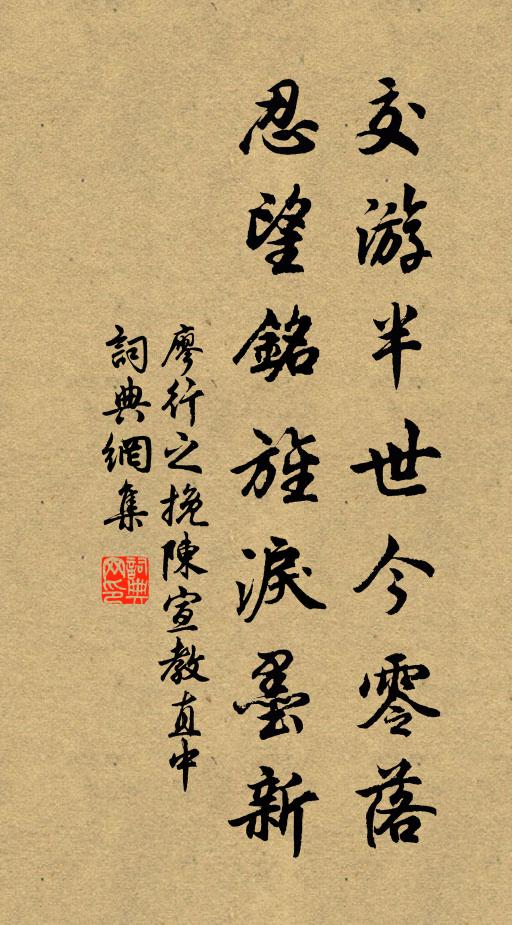 交游半世今零落
忍望銘旌淚墨新
廖行之挽陳宣教直中
詞典網集
詞典
网印